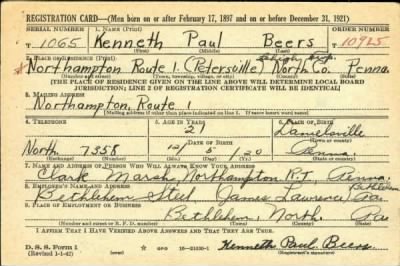 REGISTRATION CARD—(Men born on or after February 17, 1897 and on or before December 31, 1921)
SERIAL NUMBER 1. NAME (Print) ORDER NUMBER
T 1065 Kenneth Paul Beers 10925
(First) (Middle) (Last)
2. PLACE OF RESIDENCE (Print)
Northampton Route 1. (Petersville) North. Co. Penna.
(Number and street) (Town, township, village, or city) (County) (State)
(THE PLACE OF RESIDENCE GIVEN ON THE LINE ABOVE WILL DETERMINE LOCAL BOARD
JURISDICTION; LINE 2 OF REGISTRATION CERTIFICATE WILL BE IDENTICAL)
3. MAILING ADDRESS
Northampton, Route 1
(Mailing address if other than place indicated on line 2. If same insert word same)
4. TELEPHONE 5. AGE IN YEARS 6. PLACE OF BIRTH
21 Danielsville
North. 7358 12/5/20 Penna.
(Exchange) (Number) (Mo.) (Day) (Yr.) (State or country)
7. NAME AND ADDRESS OF PERSON WHO WILL ALWAYS KNOW YOUR ADDRESS
Clark Marsh, Northampton R.1. Penna.
8. EMPLOYER'S NAME AND ADDRESS
Bethlehem Steel James Lawrence Bethlehem Pa.
9. PLACE OF EMPLOYMENT OR BUSINESS
Bethlehem, North. Pa
(Number and street or R. F. D. number) (Town) (County) (State)
I AFFIRM THAT I HAVE VERIFIED ABOVE ANSWERS AND THAT THEY ARE TRUE.
D. S. S. Form 1
(Revised 1-1-42) GPO 16—21630-1 Kenneth Paul Beers
(Registrant's signature)